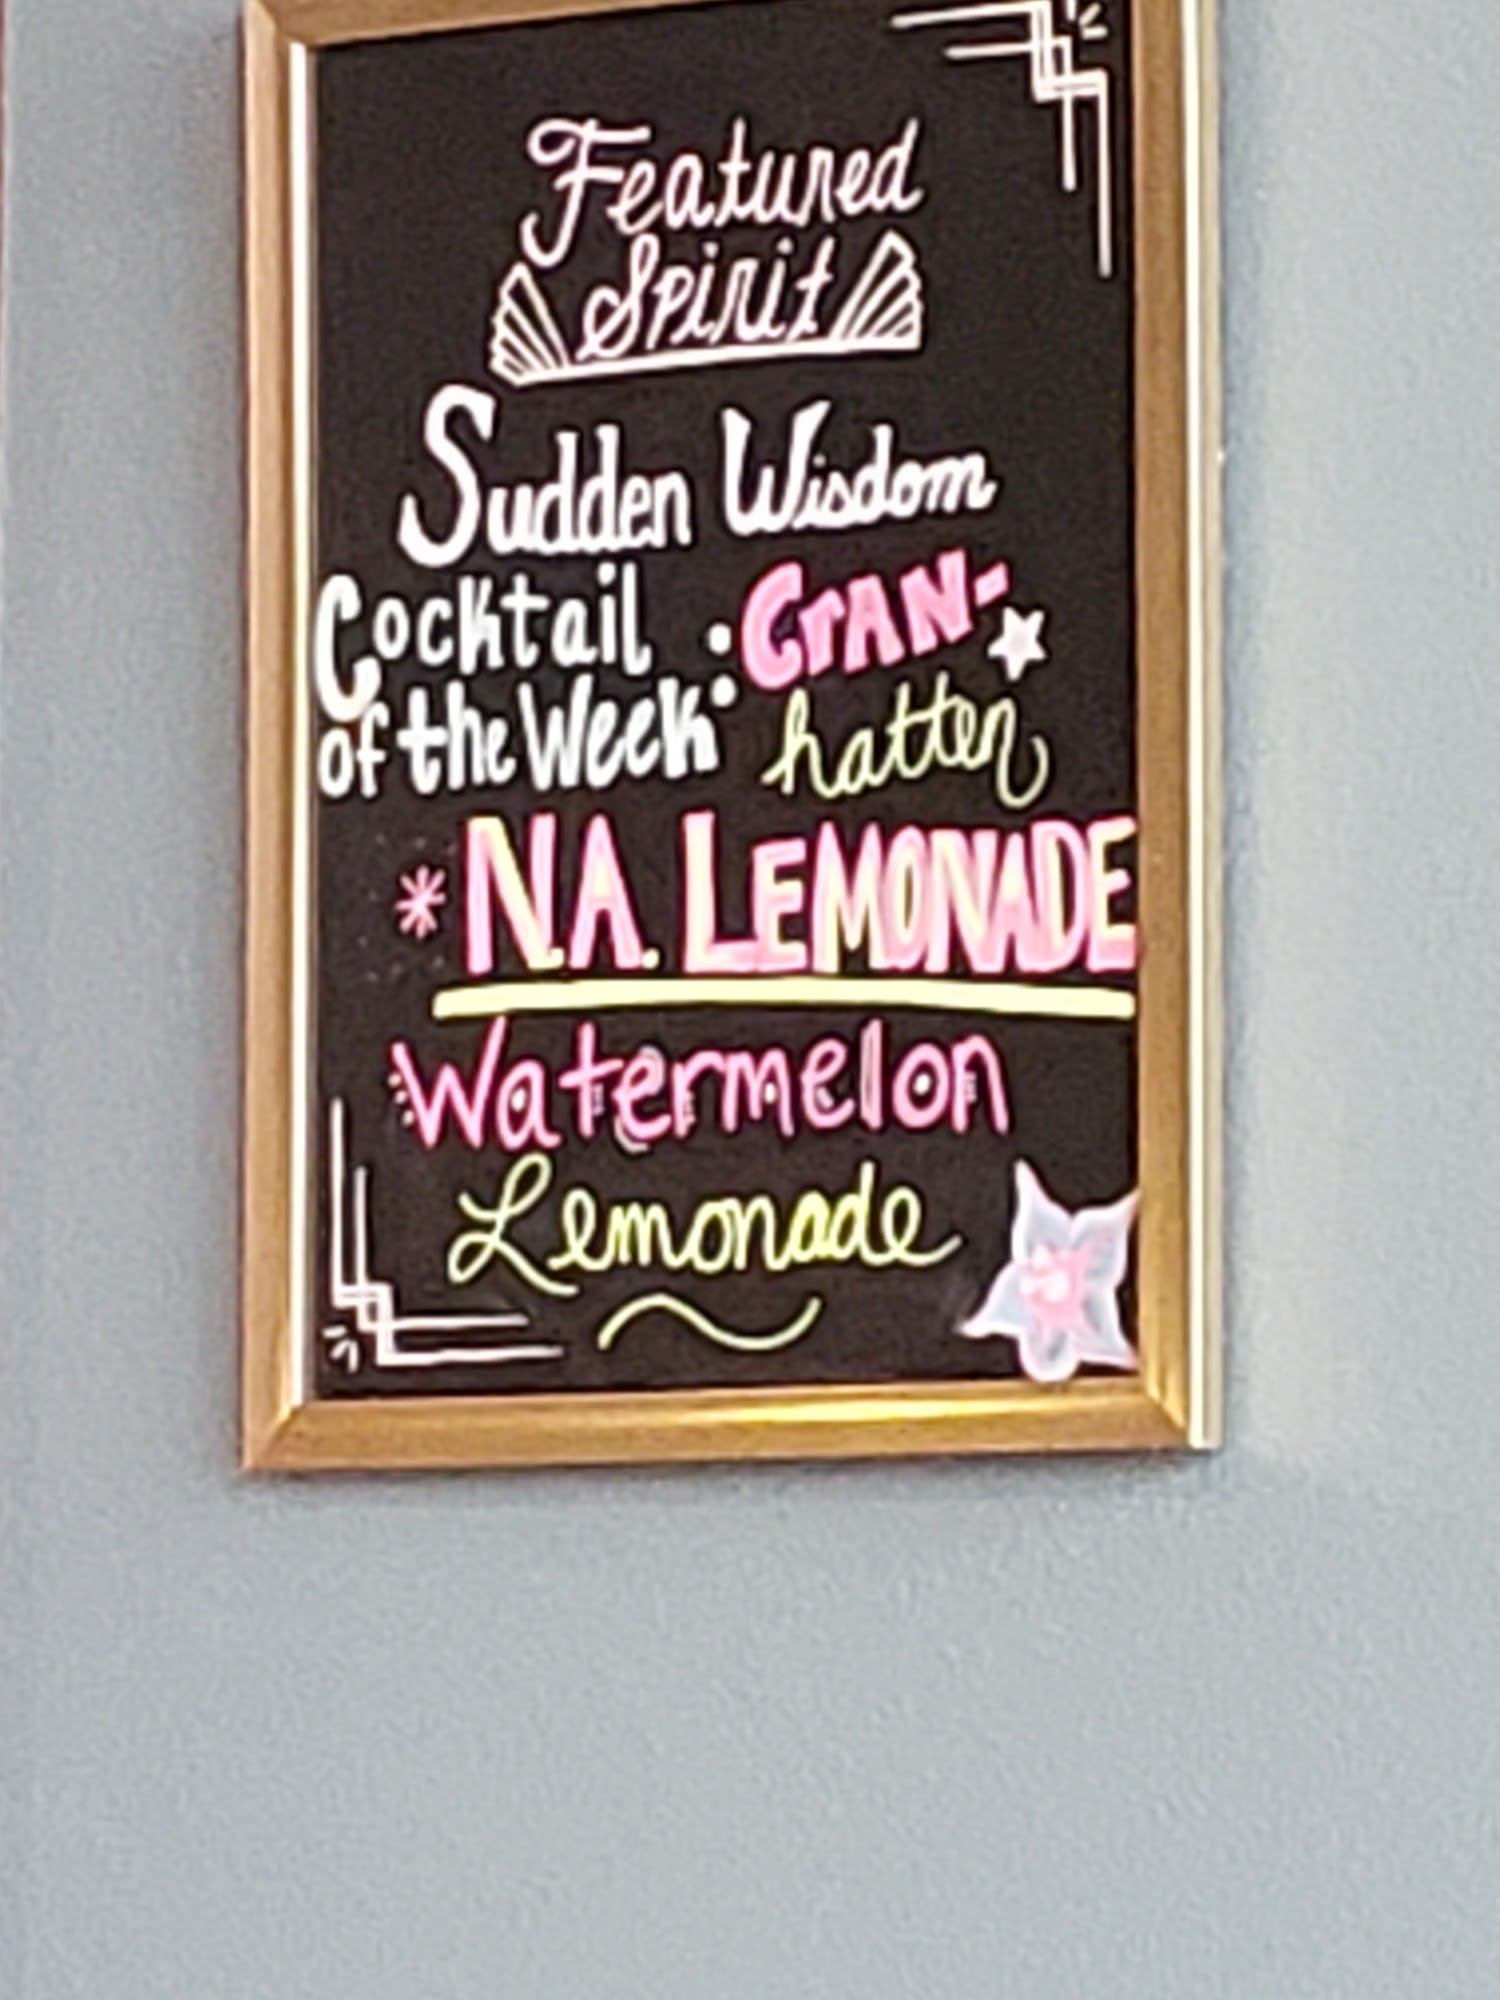 Featured
Spirit
Sudden Wisdom
Cocktail
of the Week:
CrAN-
hatten
* N.A. LEMONADE
Watermelon
Lemonade